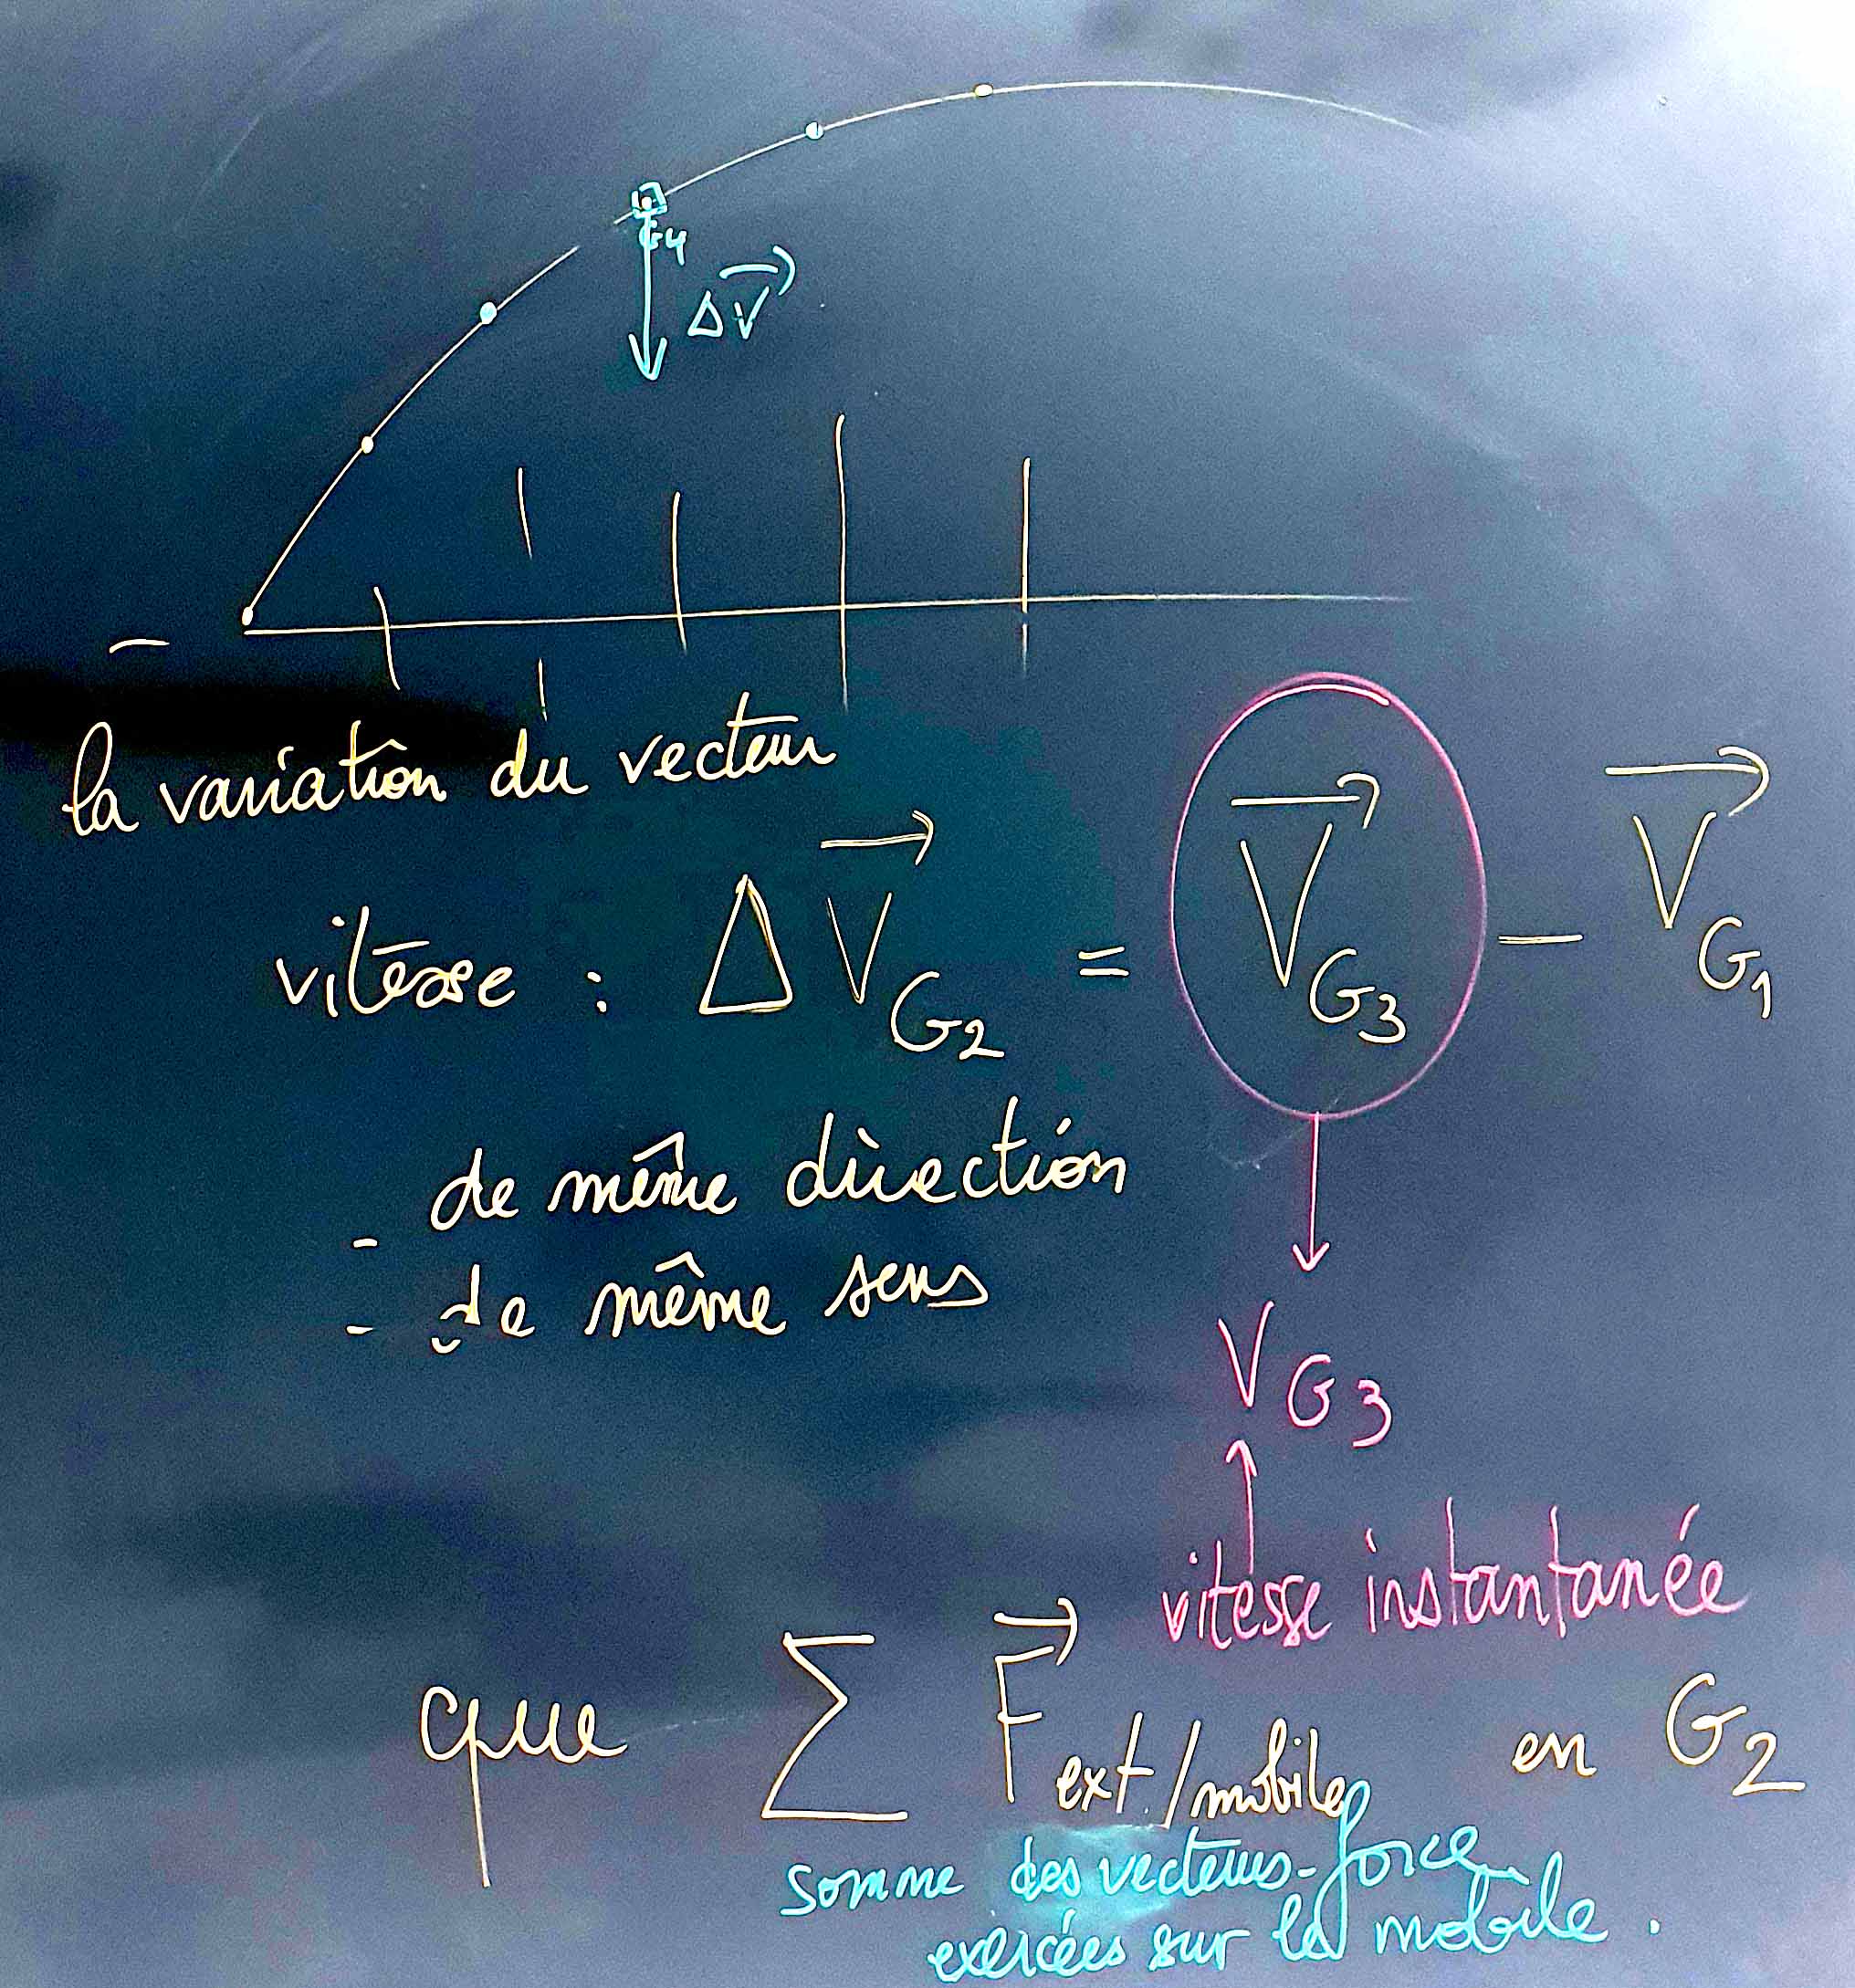 G4
ΔV⃗
la variation du vecteur
vitesse : ΔV⃗G2 = V⃗G3 − V⃗G1
- de même direction
- de même sens
VG3
vitesse instantanée
que Σ F⃗ext./mobile en G2
somme des vecteurs-force
exercées sur le mobile.